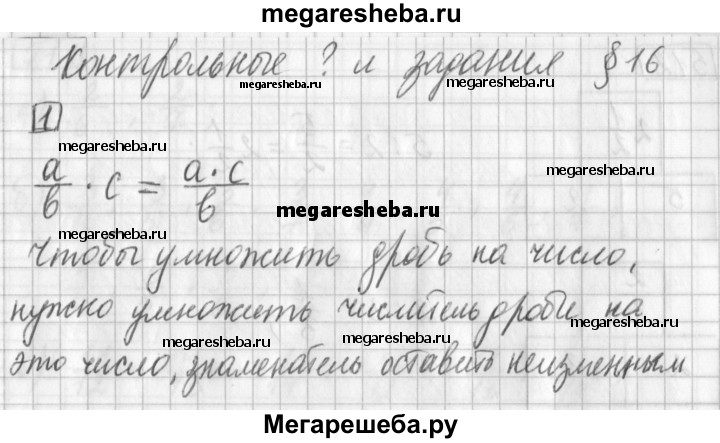 megaresheba.ru
Контрольные ? и задания § 16
megaresheba.ru megaresheba.ru
1
megaresheba.ru
megaresheba.ru
a/b · c = a·c/b
megaresheba.ru
megaresheba.ru
Чтобы умножить дробь на число,
нужно умножить числитель дроби на
megaresheba.ru
megaresheba.ru megaresheba.ru
это число, знаменатель оставить неизменным
Мегарешеба.ру